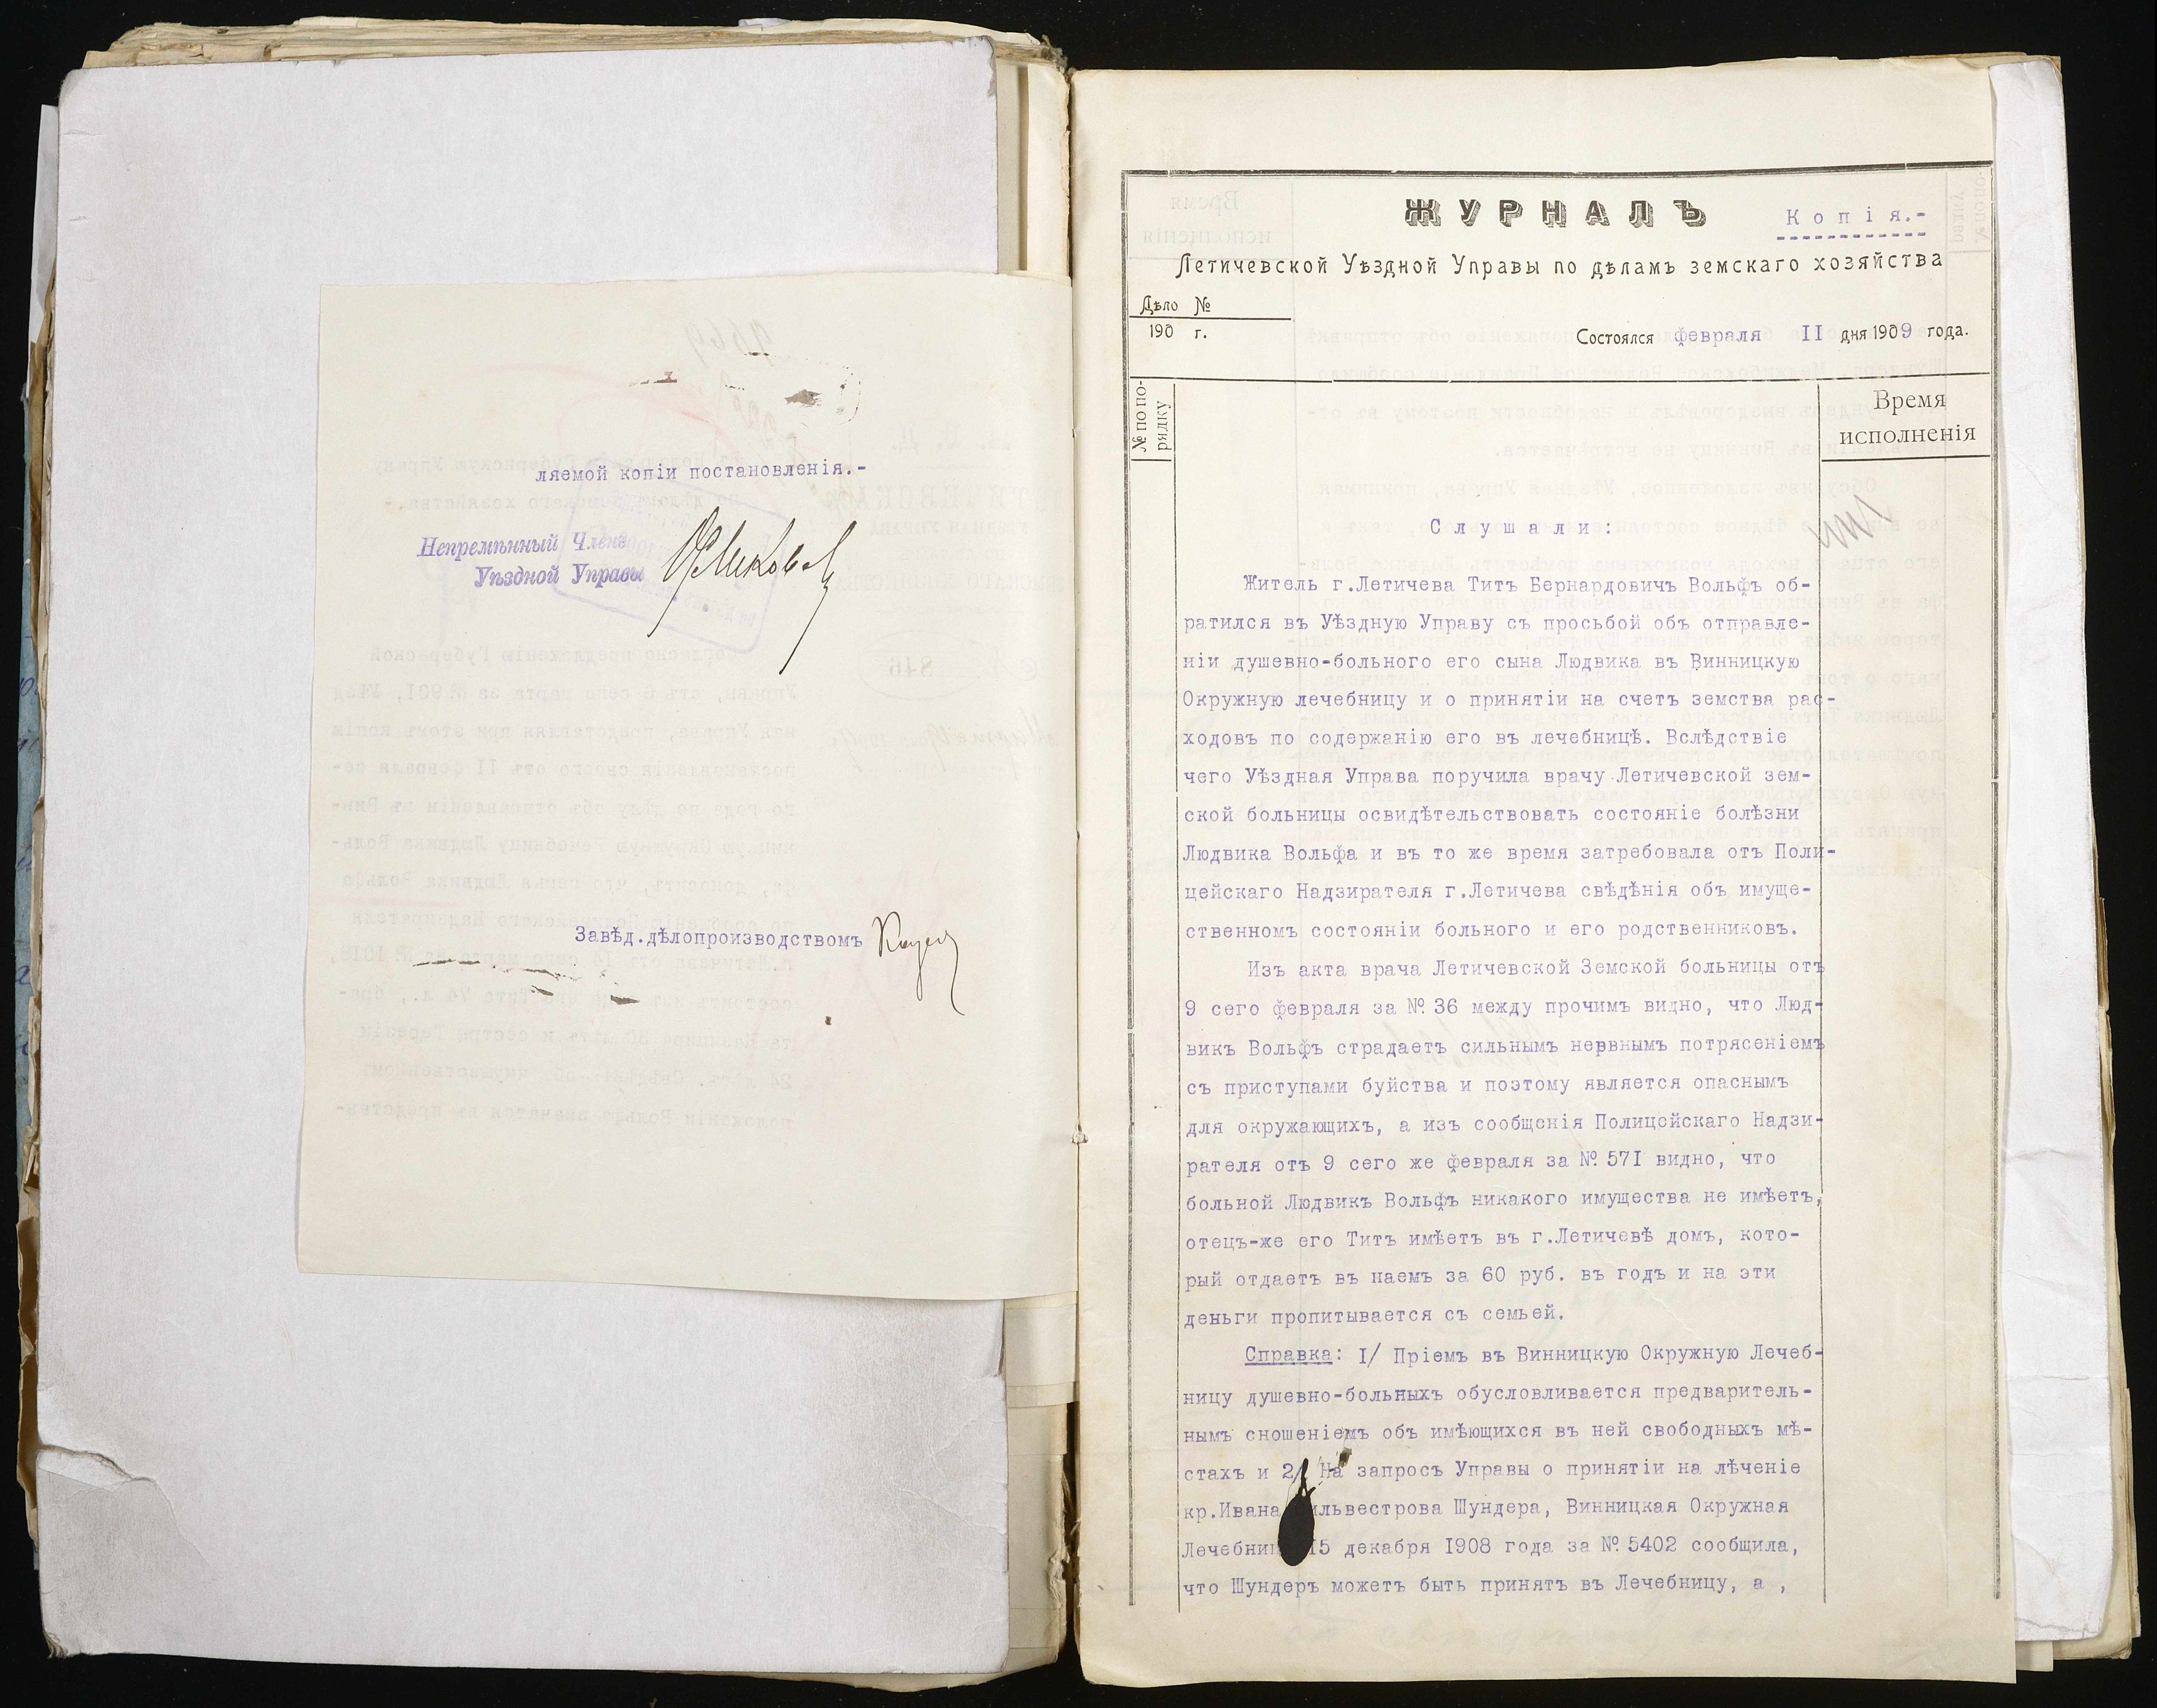 ляемой копіи постановленія.-
Непремѣнный Членъ
Уѣздной Управы
Завѣд.дѣлопроизводствомъ
ЖУРНАЛЪ
Копія.-
Летичевской Уѣздной Управы по дѣламъ земскаго хозяйства
Дѣло №
190 г.
Состоялся февраля II дня 1909 года.
№ по по-
рядку
Время
исполненія
Слушали:
Житель г.Летичева Титъ Бернардовичъ Вольфъ об-
ратился въ Уѣздную Управу съ просьбой объ отправле-
ніи душевно-больного его сына Людвика въ Винницкую
Окружную лечебницу и о принятіи на счетъ земства рас-
ходовъ по содержанію его въ лечебницѣ. Вслѣдствіе
чего Уѣздная Управа поручила врачу Летичевской зем-
ской больницы освидѣтельствовать состояніе болѣзни
Людвика Вольфа и въ то же время затребовала отъ Поли-
цейскаго Надзирателя г.Летичева свѣдѣнія объ имуще-
ственномъ состояніи больного и его родственниковъ.
Изъ акта врача Летичевской Земской больницы отъ
9 сего февраля за № 36 между прочимъ видно, что Люд-
викъ Вольфъ страдаетъ сильнымъ нервнымъ потрясеніемъ
съ приступами буйства и поэтому является опаснымъ
для окружающихъ, а изъ сообщенія Полицейскаго Надзи-
рателя отъ 9 сего же февраля за № 57I видно, что
больной Людвикъ Вольфъ никакого имущества не имѣетъ,
отецъ-же его Титъ имѣетъ въ г.Летичевѣ домъ, кото-
рый отдаетъ въ наемъ за 60 руб. въ годъ и на эти
деньги пропитывается съ семьей.
Справка: I/ Пріемъ въ Винницкую Окружную Лечеб-
ницу душевно-больныхъ обусловливается предваритель-
нымъ сношеніемъ объ имѣющихся въ ней свободныхъ мѣ-
стахъ и 2/ На запросъ Управы о принятіи на лѣченіе
кр.Ивана ильвестрова Шундера, Винницкая Окружная
Лечебни I5 декабря I908 года за № 5402 сообщила,
что Шундеръ можетъ быть принятъ въ Лечебницу, а ,